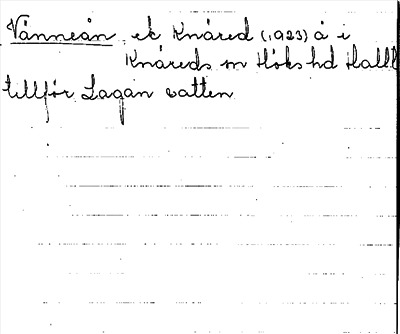 Vänneån, ek Knäred (1923) å i
Knäreds sn Höks hd Hall
tillför Lagan vatten